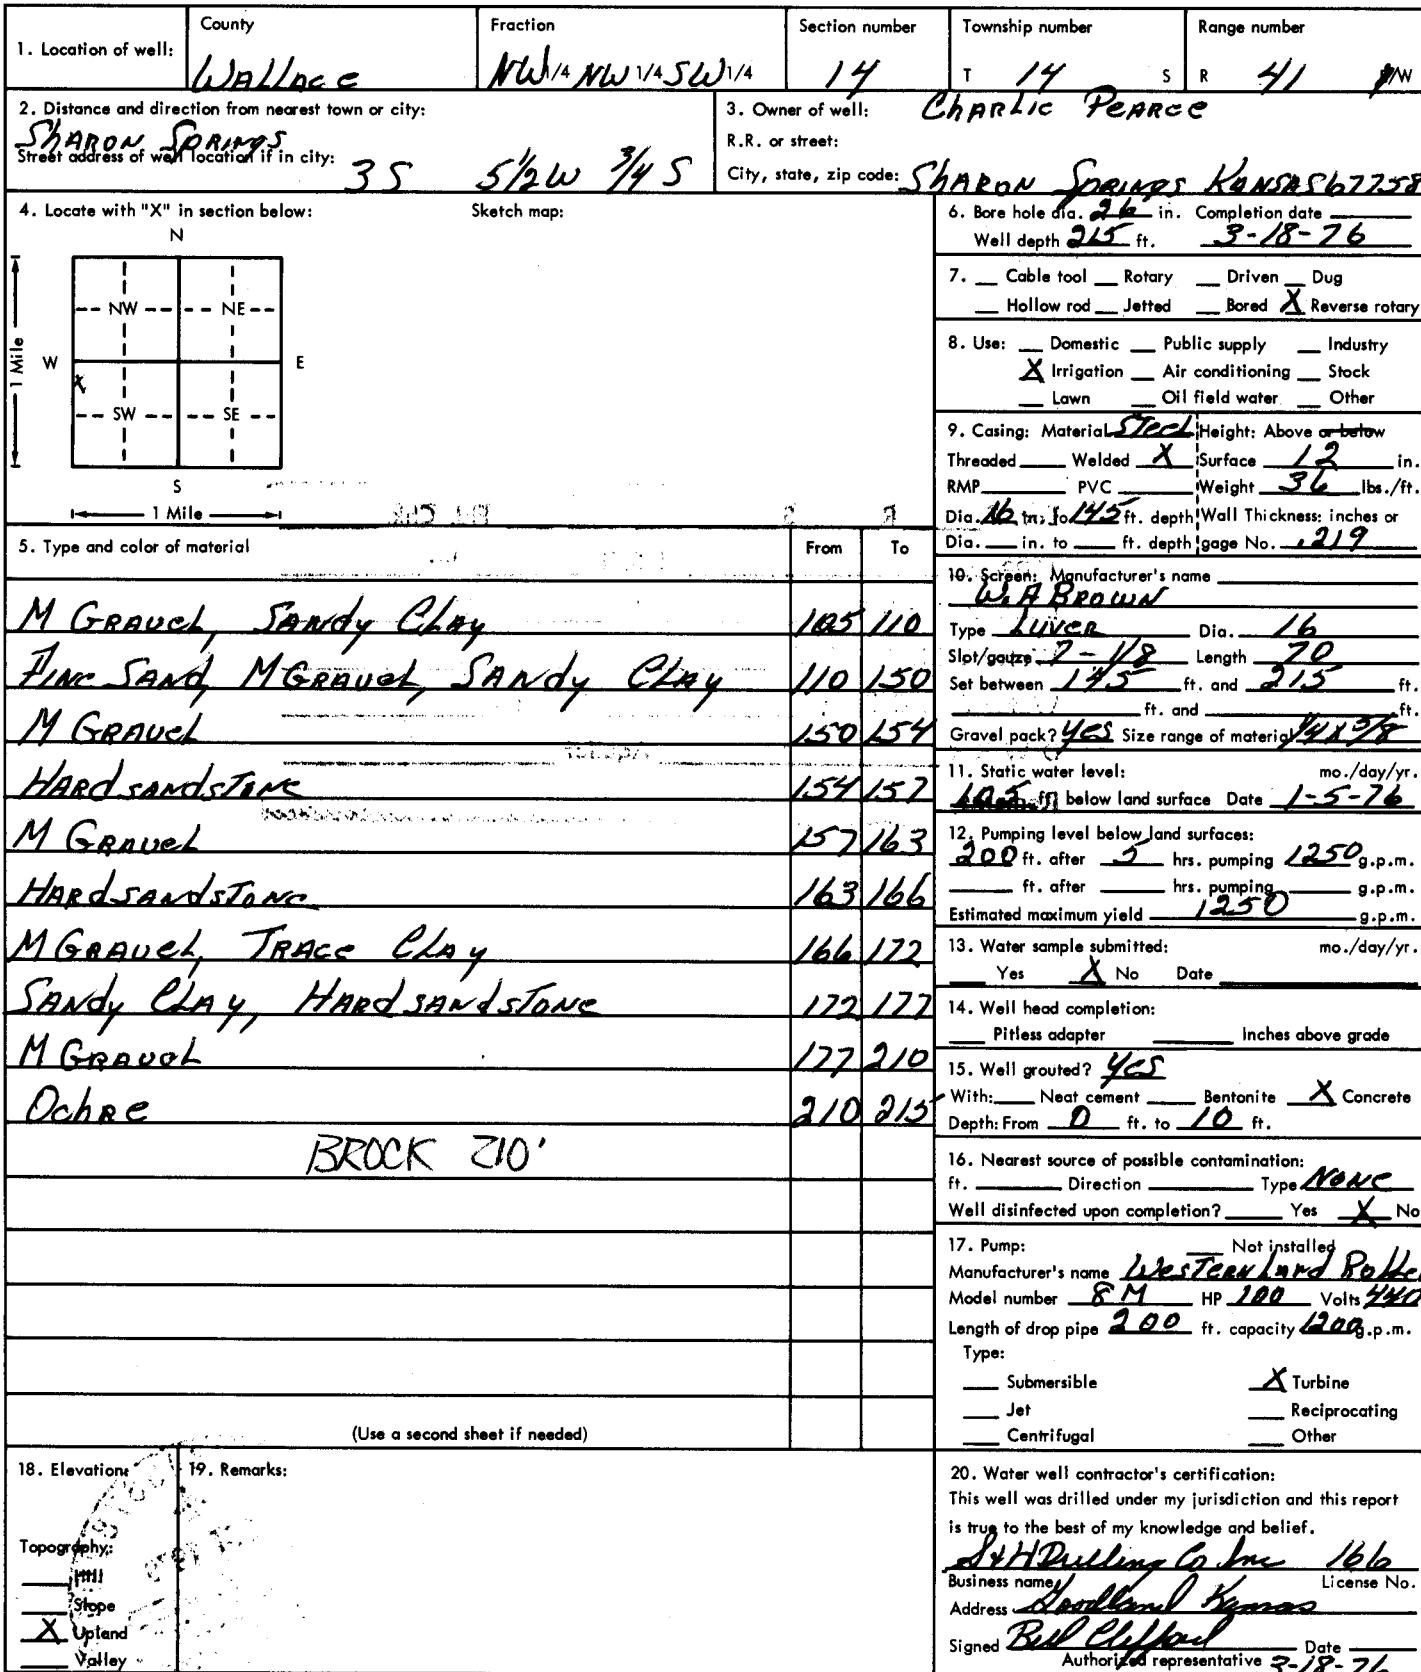 1. Location of well: County Fraction Section number Township number Range number
Wallace NW 1/4 NW 1/4 SW 1/4 14 T 14 S R 41 E/W
2. Distance and direction from nearest town or city:
Sharon Springs
Street address of well location if in city: 3 S 5 1/2 W 3/4 S
3. Owner of well: Charlie Pearce
R.R. or street:
City, state, zip code: Sharon Springs Kansas 67758
4. Locate with "X" in section below: Sketch map:
N
NW NE
W E
X
SW SE
S
1 Mile
1 Mile
5. Type and color of material From To
M Gravel, Sandy Clay 105 110
Fine Sand, M Gravel, Sandy Clay 110 150
M Gravel 150 154
Hard sandstone 154 157
M Gravel 157 163
Hard sandstone 163 166
M Gravel, Trace Clay 166 172
Sandy Clay, Hard sandstone 172 177
M Gravel 177 210
Ochre 210 215
BROCK 210'
(Use a second sheet if needed)
6. Bore hole dia. 26 in. Completion date
Well depth 215 ft. 3-18-76
7. Cable tool Rotary Driven Dug
Hollow rod Jetted Bored X Reverse rotary
8. Use: Domestic Public supply Industry
X Irrigation Air conditioning Stock
Lawn Oil field water Other
9. Casing: Material Steel Height: Above or below
Threaded Welded X Surface 12 in.
RMP PVC Weight 36 lbs./ft.
Dia. 16 in. to 145 ft. depth Wall Thickness: inches or
Dia. in. to ft. depth gage No. .219
10. Screen: Manufacturer's name
W.A Brown
Type Luver Dia. 16
Slot/gauze 7-1/8 Length 70
Set between 145 ft. and 215 ft.
ft. and ft.
Gravel pack? Yes Size range of material 1/4 x 3/8
11. Static water level: mo./day/yr.
105 ft. below land surface Date 1-5-76
12. Pumping level below land surfaces:
200 ft. after 5 hrs. pumping 1250 g.p.m.
ft. after hrs. pumping g.p.m.
Estimated maximum yield 1250 g.p.m.
13. Water sample submitted: mo./day/yr.
Yes X No Date
14. Well head completion:
Pitless adapter Inches above grade
15. Well grouted? Yes
With: Neat cement Bentonite X Concrete
Depth: From 0 ft. to 10 ft.
16. Nearest source of possible contamination:
ft. Direction Type None
Well disinfected upon completion? Yes X No
17. Pump: Not installed
Manufacturer's name Western Land Roller
Model number 8 M HP 100 Volts 440
Length of drop pipe 200 ft. capacity 1200 g.p.m.
Type:
Submersible X Turbine
Jet Reciprocating
Centrifugal Other
18. Elevation:
Topography:
Hill
Slope
X Upland
Valley
19. Remarks:
20. Water well contractor's certification:
This well was drilled under my jurisdiction and this report
is true to the best of my knowledge and belief.
S&H Drilling Co Inc 166
Business name License No.
Address Goodland Kansas
Signed Bill Clifford Date
Authorized representative 3-18-76